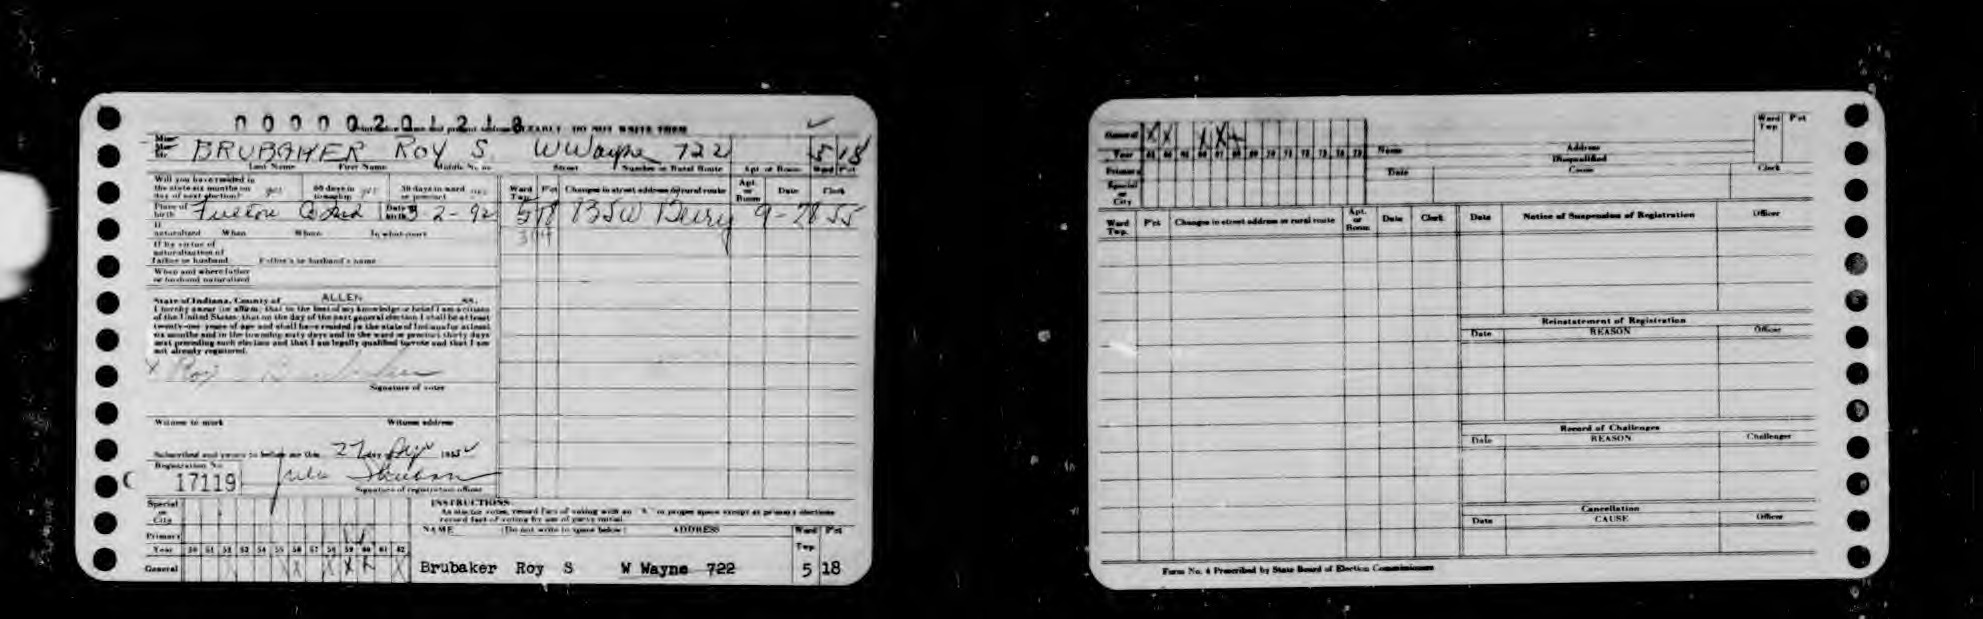 000020121
DO NOT WRITE THEM
BRUBAKER ROY S. W Wayne 722 5 18
Last Name First Name Middle Name Street Number or Rural Route Apt. or Room Ward P'ct
Will you have resided in the state six months on day of next election? yes 60 days in township yes 30 days in ward or precinct yes
Ward Twp. P'ct Changes in street address or rural route Apt. or Room Date Clerk
Place of birth Fulton Co Ind Date birth 3 2-92 5 18 Berry 9-28 55
304
If naturalized When Where In what court
If by virtue of naturalization of father or husband Father's or husband's name
When and where father or husband naturalized
State of Indiana, County of ALLEN ss.
I hereby swear (or affirm) that to the best of my knowledge or belief I am a citizen
of the United States; that on the day of the next general election I shall be at least
twenty-one years of age and shall have resided in the state of Indiana for at least
six months and in the township sixty days and in the ward or precinct thirty days
next preceding such election and that I am legally qualified to vote and that I am
not already registered.
x Roy
Signature of voter
Witness to mark Witness address
Subscribed and sworn to before me this 27 day
Registration No.
17119
Signature of registration officer
Special or City
Primary
Year 50 51 52 53 54 55 56 57 58 59 60 61 62
General X X X X X
INSTRUCTIONS
As elector votes, record fact of voting with an "X" in proper space except at primary elections
record fact of voting by use of party initial.
NAME (Do not write in space below) ADDRESS Ward Twp. P'ct
Brubaker Roy S W Wayne 722 5 18
General X X X X
Year 63 64 65 66 67 68 69 70 71 72 73 74 75
Primary
Special or City
Name Address Ward Twp P'ct
Disqualified
Date Cause Clerk
Ward Twp. P'ct Changes in street address or rural route Apt. or Room Date Clerk Date Notice of Suspension of Registration Officer
Reinstatement of Registration
Date REASON Officer
Record of Challenges
Date REASON Challenger
Cancellation
Date CAUSE Officer
Form No. 4 Prescribed by State Board of Election Commissioners